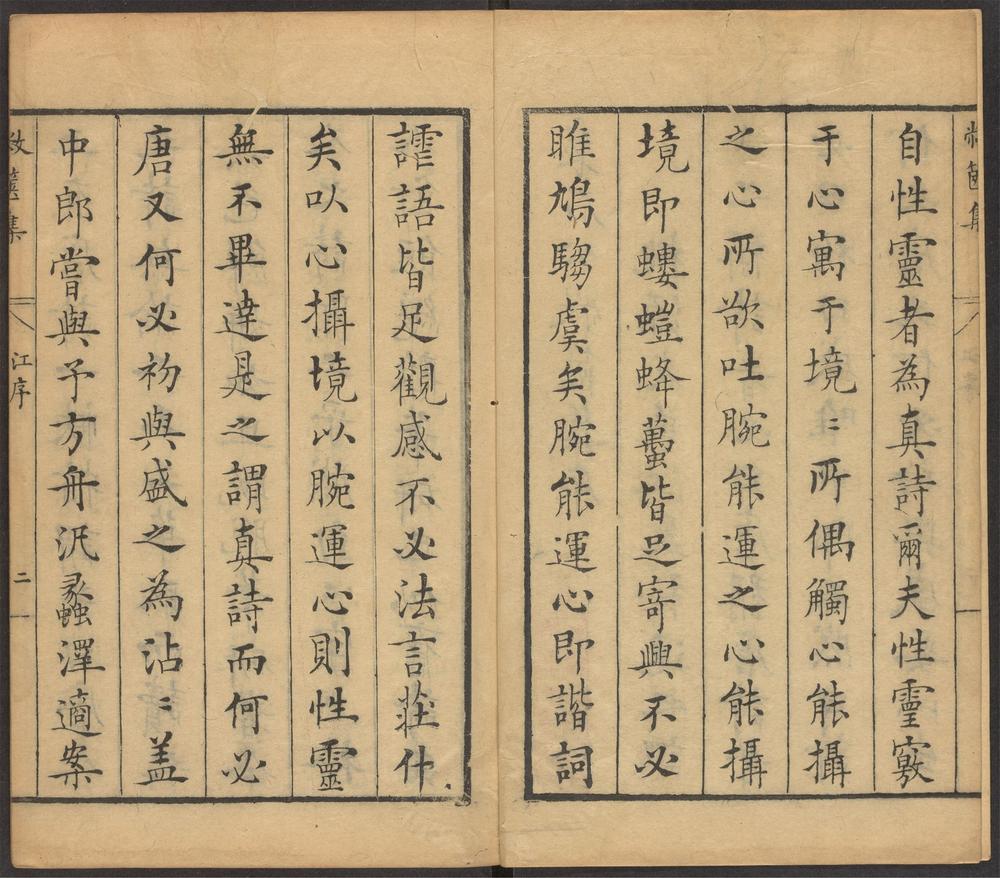 自性靈者為真詩爾夫性靈竅
于心寓于境〻所偶觸心能攝
之心所欲吐腕能運之心能攝
境即螻螘蜂蠆皆足寄興不必
雎鳩騶虞矣腕能運心即諧詞
謔語皆足觀感不必法言莊什
矣以心攝境以腕運心則性靈
無不畢達是之謂真詩而何必
唐又何必初與盛之為沾〻蓋
中郎嘗與予方舟汎蠡澤適案
敝篋集
江序
二